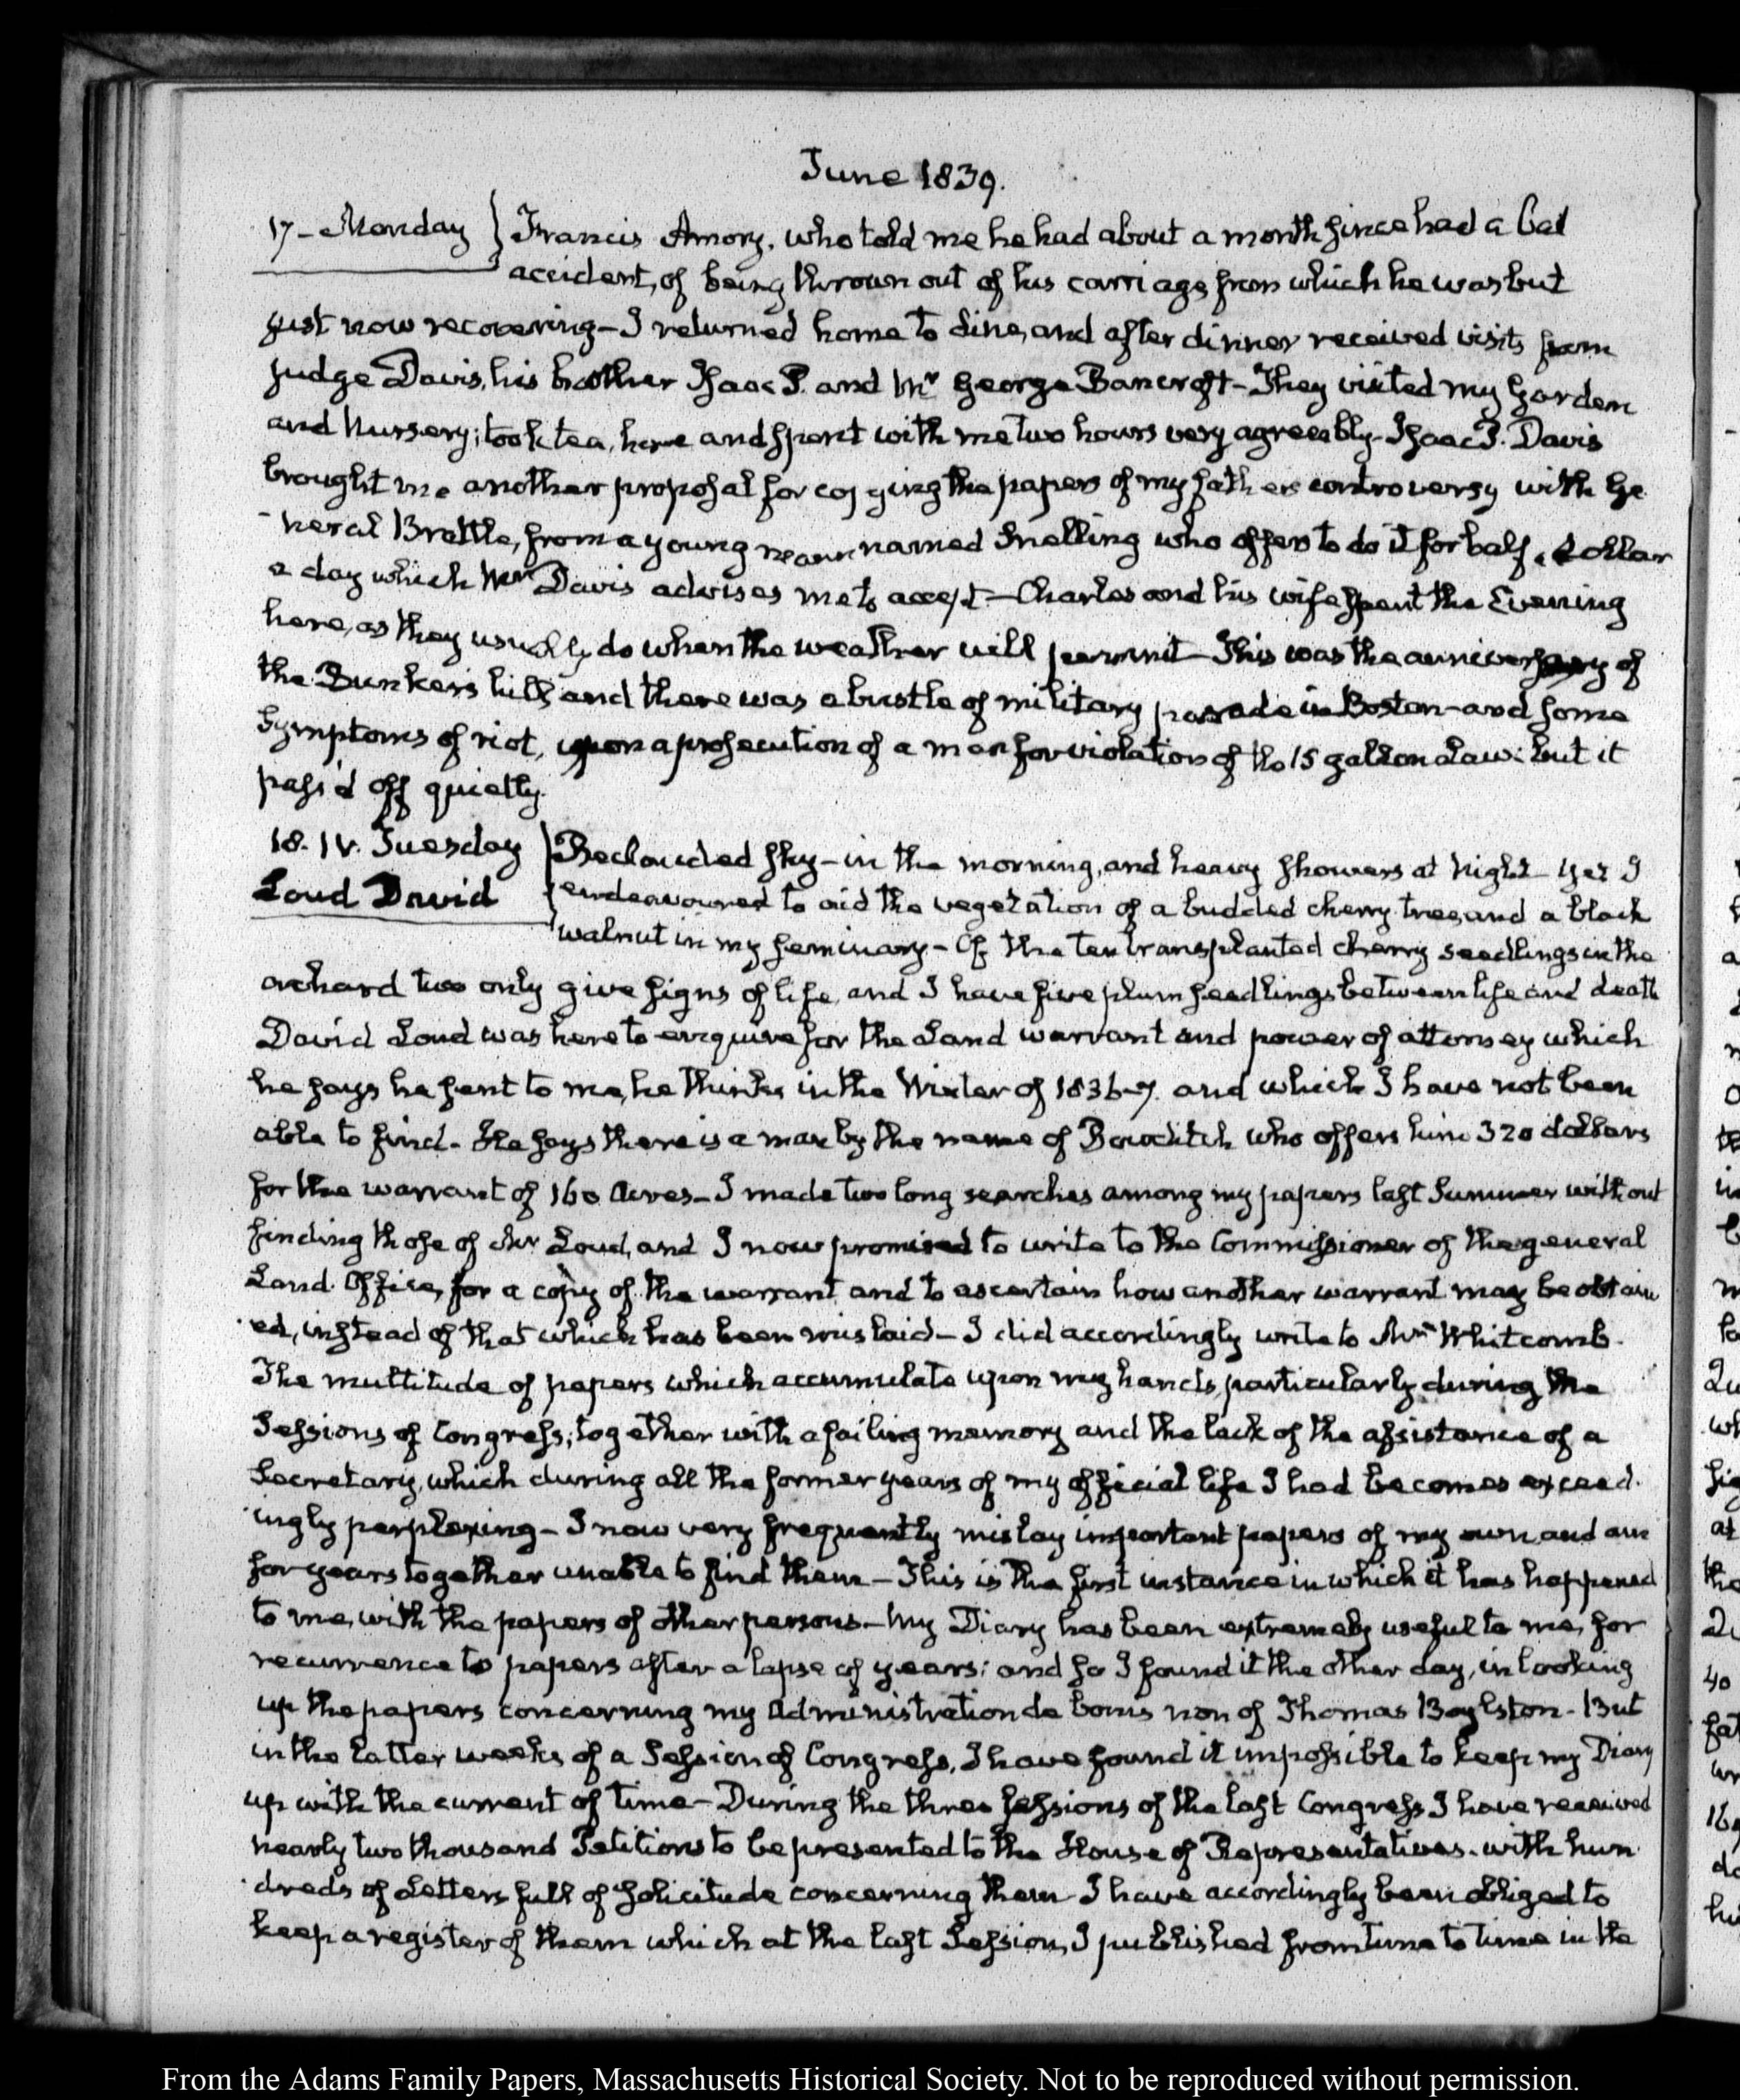 June 1839.
17 - Monday } Francis Amory, who told me he had about a month since had a bad
accident, of being thrown out of his carriage from which he was but
just now recovering - I returned home to dine, and after dinner received visits from
Judge Davis, his brother Isaac P. and Mr George Bancroft - They visited my Garden
and Nursery; took tea, here and spent with me two hours very agreeably - Isaac P. Davis
brought me another proposal for copying the papers of my father's controversy with Ge
-neral Brattle, from a young man named Snelling who offers to do it for half a dollar
a day which Mr Davis advises me to accept - Charles and his wife spent the Evening
here, as they usually do when the weather will permit - This was the anniversary of
the Bunker's hill and there was a bustle of military parade in Boston - and some
symptoms of riot, upon a prosecution of a man for violation of the 15 gallon Law: but it
pass'd off quietly.
18. IV. Tuesday } Beclouded sky - in the morning, and heavy showers at Night - Yet I
Loud David } endeavoured to aid the vegetation of a budded cherry tree, and a black
walnut in my seminary - Of the ten transplanted cherry seedlings in the
orchard two only give signs of life, and I have five plum seedlings between life and death
David Loud was here to enquire for the Land warrant and power of attorney which
he says he sent to me, he thinks in the Winter of 1836-7. and which I have not been
able to find - He says there is a man by the name of Bowditch who offers him 320 dollars
for the warrant of 160 Acres - I made two long searches among my papers last Summer without
finding those of Mr Loud, and I now promised to write to the Commissioner of the general
Land Office, for a copy of the warrant and to ascertain how another warrant may be obtain
-ed, instead of that which has been mislaid - I did accordingly write to Mr Whitcomb.
The multitude of papers which accumulate upon my hands, particularly during the
Sessions of Congress; together with a failing memory and the lack of the assistance of a
Secretary, which during all the former years of my official life I had becomes exceed-
-ingly perplexing - I now very frequently mislay important papers of my own and am
for years together unable to find them - This is the first instance in which it has happened
to me, with the papers of other persons - My Diary has been extremely useful to me, for
recurrence to papers after a lapse of years; and so I found it the other day, in looking
up the papers concerning my Administration de bonis non of Thomas Boylston - But
in the latter weeks of a Session of Congress, I have found it impossible to keep my Diary
up with the current of time - During the three sessions of the last Congress I have received
nearly two thousand Petitions to be presented to the House of Representatives - with hun
-dreds of Letters full of solicitude concerning them - I have accordingly been obliged to
keep a register of them which at the last Session, I published from time to time in the
From the Adams Family Papers, Massachusetts Historical Society. Not to be reproduced without permission.